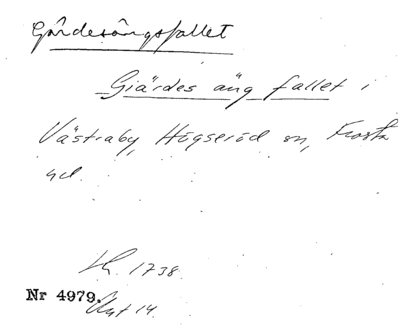 Gärdesängsfallet
Giärdes äng fallet i
Västraby, Högseröd sn, Frosta
hd.
Lh. 1738.
Nr 4979.
Akt 14.